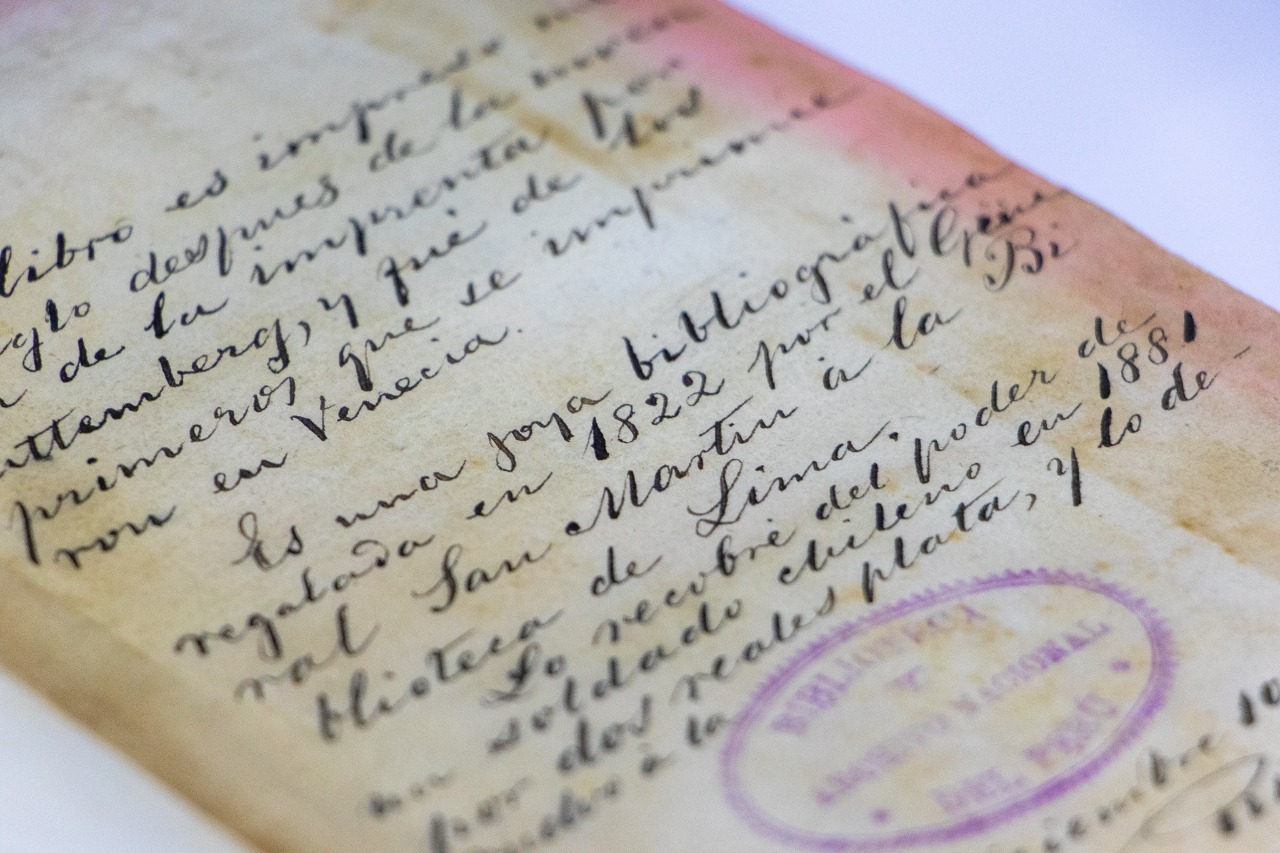 libro es impreso
glo despues de la
de la imprenta por
uttemberg, y fué de los
primeros que se imprimie
ron en Venecia.
Es una joya bibliográfica
regalada en 1822 por el Géne
ral San Martin á la Bi
blioteca de Lima.
Lo recobré del poder de
un soldado chileno en 1881
por dos reales plata, y lo de-
vuelvo á la
BIBLIOTECA
Y
ARCHIVO NACIONAL
DEL PERÚ